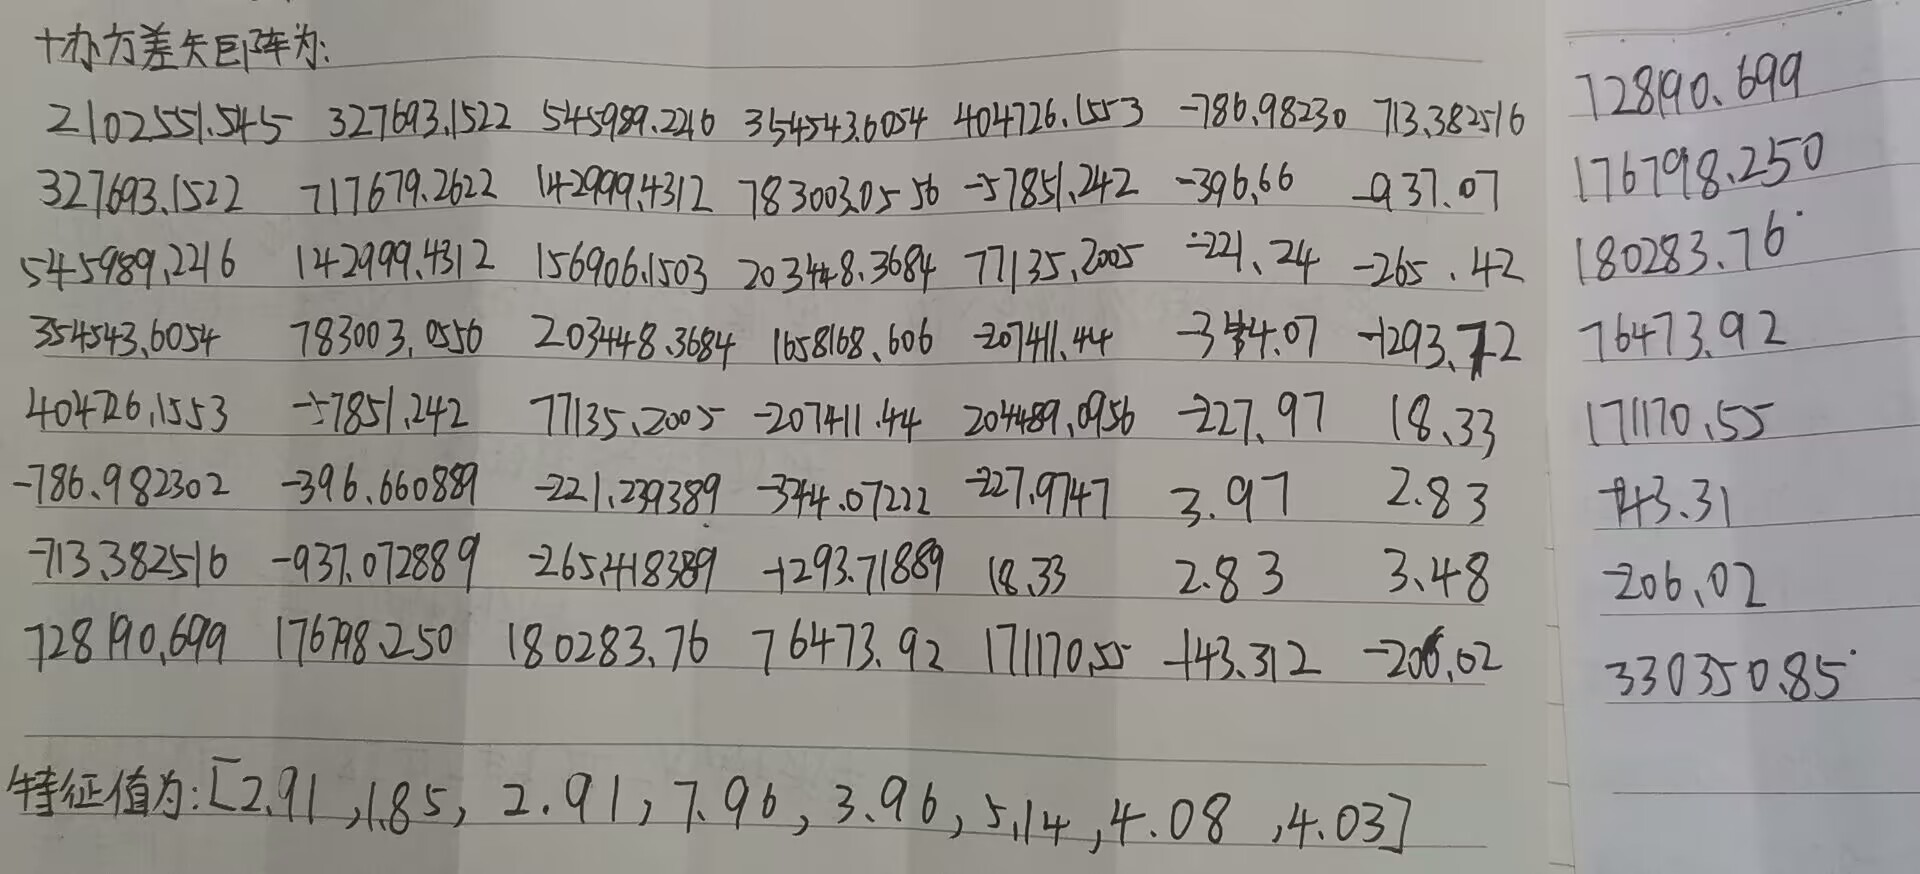 协方差矩阵为:
2102551.545 327693.1522 545989.2216 354543.6054 404726.1553 -786.98230 713.382516 728190.699
327693.1522 717679.2622 142999.4312 783003.0556 -57851.242 -396.66 -937.07 176798.250
545989.2216 142999.4312 156906.1503 203448.3684 77135.2005 -221.24 -265.42 180283.76
354543.6054 783003.0556 203448.3684 1658168.606 -207411.44 -344.07 -1293.72 76473.92
404726.1553 -57851.242 77135.2005 -207411.44 204489.0956 -227.97 18.33 171170.55
-786.982302 -396.660889 -221.239389 -344.07222 -227.9747 3.97 2.83 -143.31
-713.382516 -937.072889 -265.418389 -1293.71889 18.33 2.83 3.48 -206.02
728190.699 176798.250 180283.76 76473.92 171170.55 -143.312 -206.02 330350.85
特征值为:[2.91,1.85,2.91,7.96,3.96,5.14,4.08,4.03]